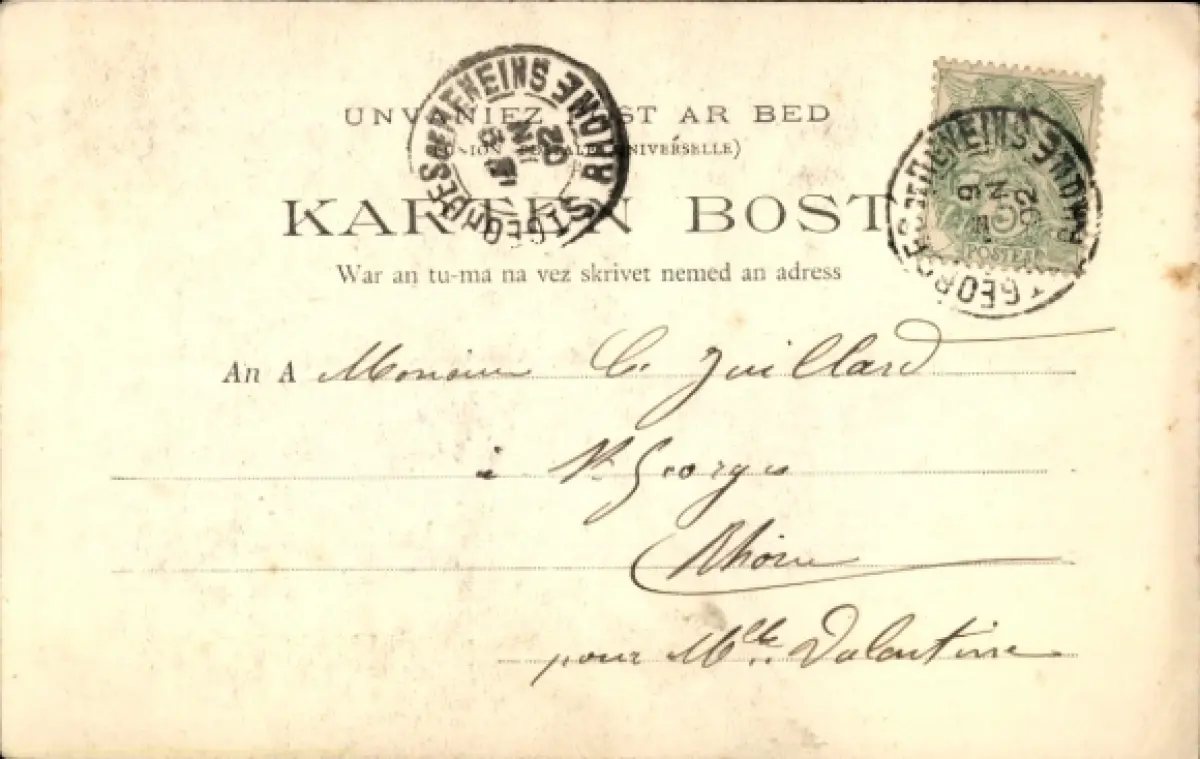 UNVANIEZ POST AR BED
(UNION POSTALE UNIVERSELLE)
KARTEN BOST
War an tu-ma na vez skrivet nemed an adress
ST GEORGES DE RENEINS RHONE
JUIN 02
ST GEORGES DE RENEINS RHONE
9 JUIN 02
5c
POSTES
An A Monsieur C. Juillard
à St Georges
Rhône
pour Mlle Valentine